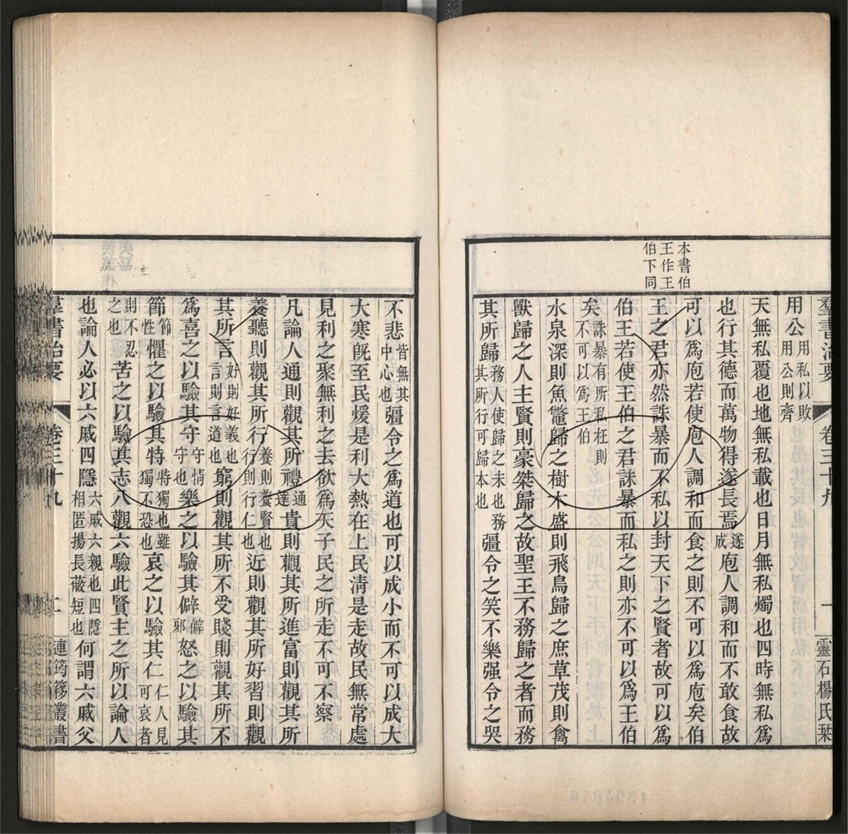 本書伯
王作王
伯下同
羣書治要 卷三十九 一 靈石楊氏栞
用公用私以敗用公則齊
天無私覆也地無私載也日月無私燭也四時無私爲
也行其德而萬物得遂長焉遂成庖人調和而不敢食故
可以爲庖若使庖人調和而食之則不可以爲庖矣伯
王之君亦然誅暴而不私以封天下之賢者故可以爲
伯王若使王伯之君誅暴而私之則亦不可以爲王伯
矣誅暴有所私枉則不可以爲王伯
水泉深則魚鼈歸之樹木盛則飛鳥歸之庶草茂則禽
獸歸之人主賢則豪桀歸之故聖王不務歸之者而務
其所歸務人使歸之末也務其所行可歸本也彊令之笑不樂强令之哭
不悲皆無其中心也彊令之爲道也可以成小而不可以成大
大寒旣至民煖是利大熱在上民淸是走故民無常處
見利之聚無利之去欲爲天子民之所走不可不察
凡論人通則觀其所禮通達貴則觀其所進富則觀其所
養聽則觀其所行養則養賢也行則行仁也近則觀其所好習則觀
其所言好則好義也言則言道也窮則觀其所不受賤則觀其所不
爲喜之以驗其守守情守也樂之以驗其僻僻邪怒之以驗其
節節性懼之以驗其特特獨也雖獨不恐也哀之以驗其仁仁人見可哀者
則不忍之也苦之以驗其志八觀六驗此賢主之所以論人
也論人必以六戚四隱六戚六親也四隱相匿揚長蔽短也何謂六戚父
羣書治要 卷三十九 二 連筠簃叢書